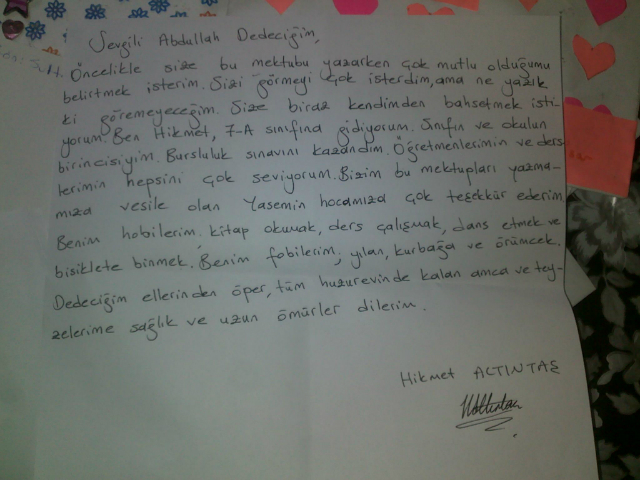 Sevgili Abdullah Dedeciğim,
Öncelikle size bu mektubu yazarken çok mutlu olduğumu
belirtmek isterim. Sizi görmeyi çok isterdim, ama ne yazık
ki göremeyeceğim. Size biraz kendimden bahsetmek isti-
yorum. Ben Hikmet, 7-A sınıfına gidiyorum. Sınıfın ve okulun
birincisiyim. Bursluluk sınavını kazandım. Öğretmenlerimin ve ders
lerimin hepsini çok seviyorum. Bizim bu mektupları yazma-
mıza vesile olan Yasemin hocamıza çok teşekkür ederim.
Benim hobilerim; kitap okumak, ders çalışmak, dans etmek ve
bisiklete binmek. Benim fobilerim; yılan, kurbağa ve örümcek.
Dedeciğim ellerinden öper, tüm huzurevinde kalan amca ve tey-
zelerime sağlık ve uzun ömürler dilerim.
Hikmet ALTINTAŞ